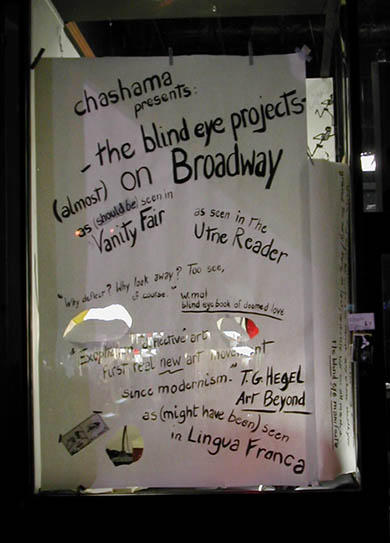 chashama
presents:
- the blind eye projects -
(almost) on Broadway
as (should be) seen in
Vanity Fair
as seen in The
Utne Reader
"Why defleur? Why look away? Too see,
of course."
w.mot
blind eye book of doomed love
art
First real new art movement
since modernism." T.G. HEGEL
Art Beyond
as (might have been) seen
in Lingua Franca